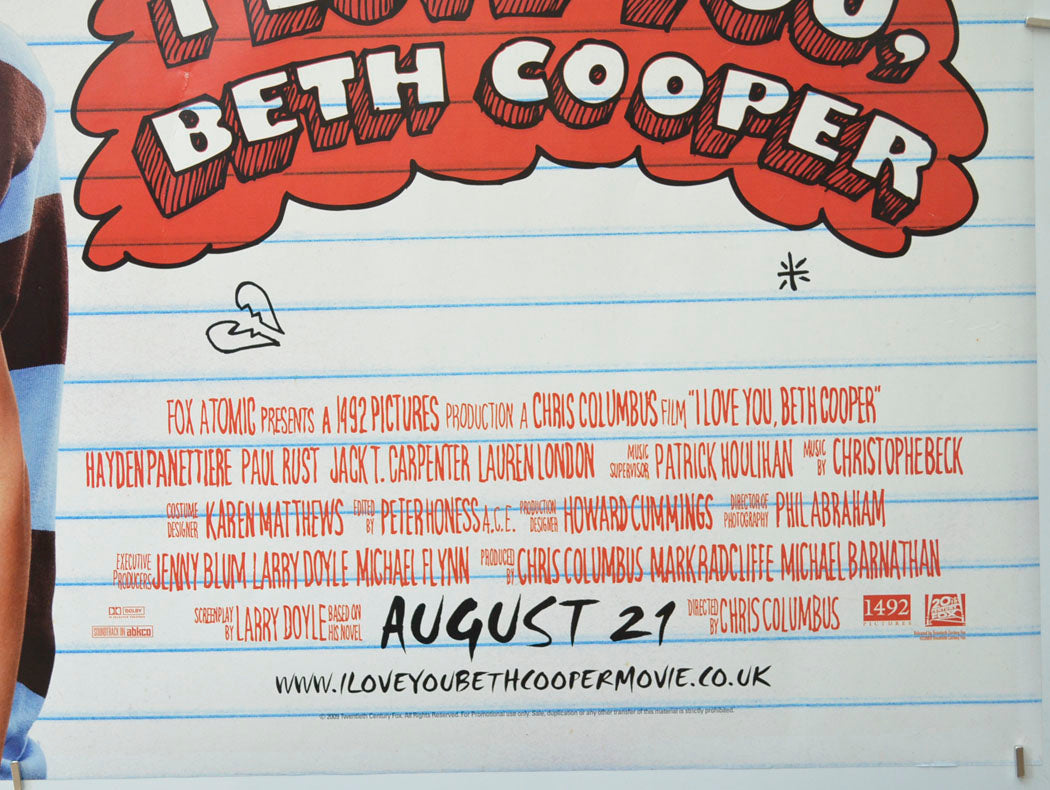 I LOVE YOU,
BETH COOPER
FOX ATOMIC PRESENTS A 1492 PICTURES PRODUCTION A CHRIS COLUMBUS FILM "I LOVE YOU, BETH COOPER"
HAYDEN PANETTIERE PAUL RUST JACK T. CARPENTER LAUREN LONDON MUSIC SUPERVISOR PATRICK HOULIHAN MUSIC BY CHRISTOPHE BECK
COSTUME DESIGNER KAREN MATTHEWS EDITED BY PETER HONESS A.C.E. PRODUCTION DESIGNER HOWARD CUMMINGS DIRECTOR OF PHOTOGRAPHY PHIL ABRAHAM
EXECUTIVE PRODUCERS JENNY BLUM LARRY DOYLE MICHAEL FLYNN PRODUCED BY CHRIS COLUMBUS MARK RADCLIFFE MICHAEL BARNATHAN
DOLBY SOUNDTRACK ON abkco SCREENPLAY BY LARRY DOYLE BASED ON HIS NOVEL AUGUST 21 DIRECTED BY CHRIS COLUMBUS 1492 PICTURES 20th CENTURY FOX
WWW.ILOVEYOUBETHCOOPERMOVIE.CO.UK
© 2009 Twentieth Century Fox. All Rights Reserved. For Promotional use only. Sale, duplication or any other transfer of this material is strictly prohibited.